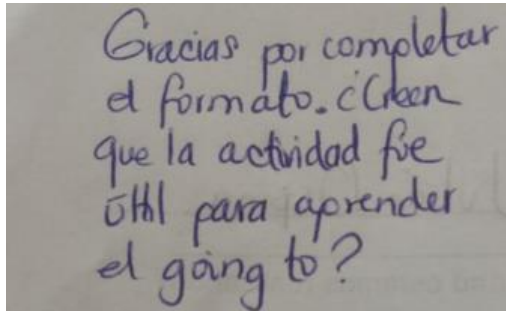 Gracias por completar
el formato. ¿Creen
que la actividad fue
útil para aprender
el going to?